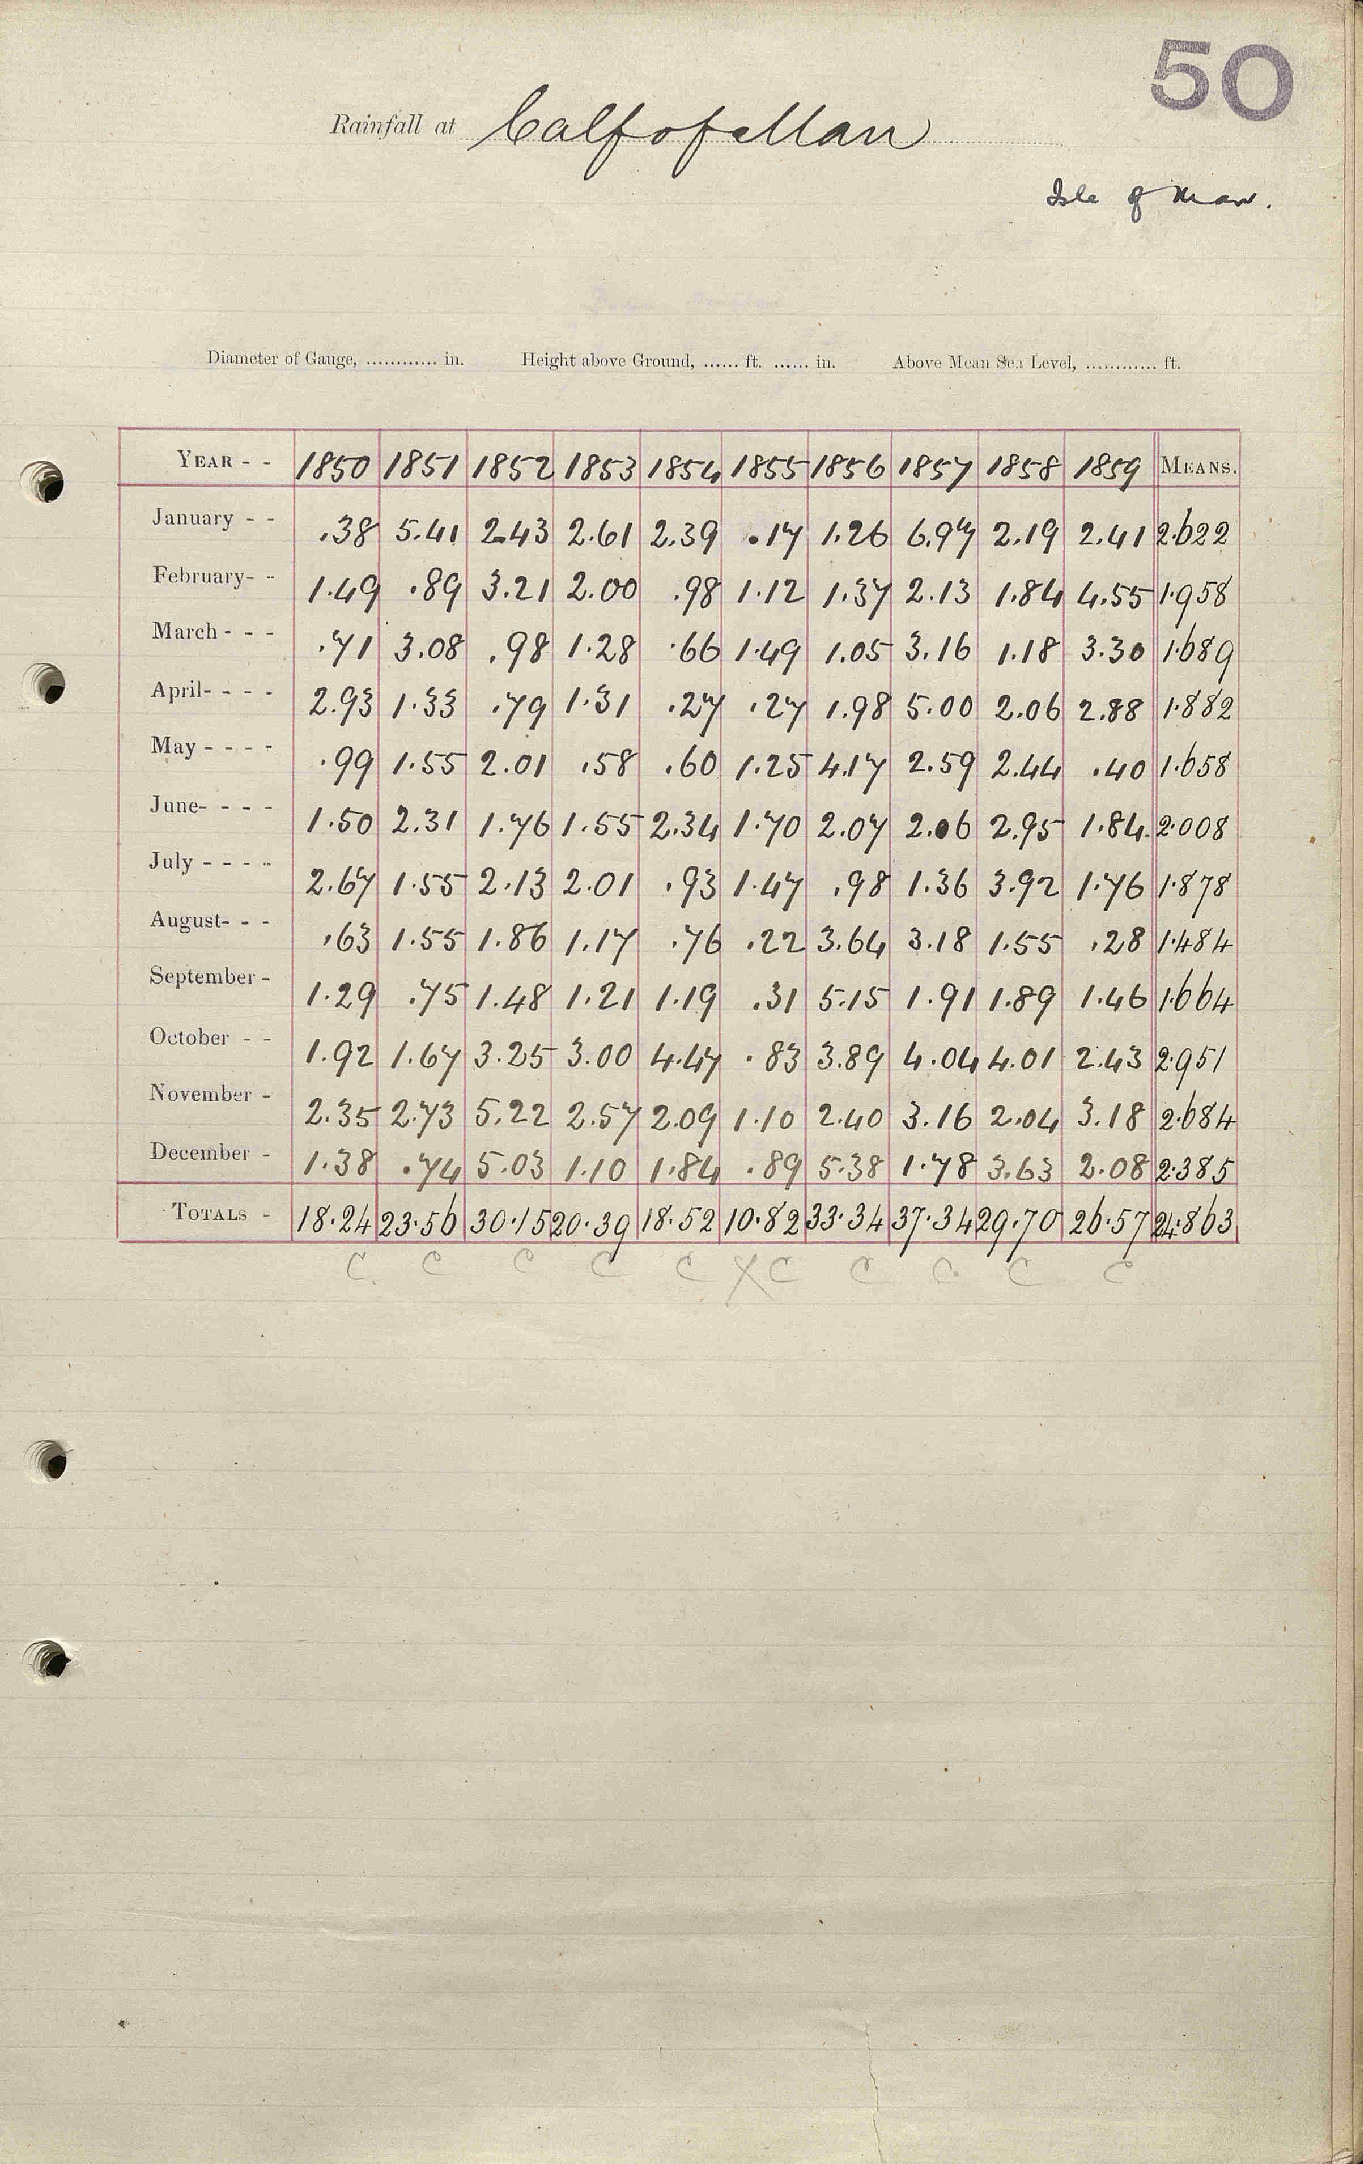 50
Rainfall at Calf of Man
Isle of Man.
Diameter of Gauge, ............ in. Height above Ground, ...... ft. ...... in. Above Mean Sea Level, ............ ft.
YEAR - - 1850 1851 1852 1853 1854 1855 1856 1857 1858 1859 MEANS.
January - - .38 5.41 2.43 2.61 2.39 .17 1.26 6.97 2.19 2.41 2.622
February- - 1.49 .89 3.21 2.00 .98 1.12 1.37 2.13 1.84 4.55 1.958
March - - - .71 3.08 .98 1.28 .66 1.49 1.05 3.16 1.18 3.30 1.689
April- - - - 2.93 1.33 .79 1.31 .27 .27 1.98 5.00 2.06 2.88 1.882
May - - - - .99 1.55 2.01 .58 .60 1.25 4.17 2.59 2.44 .40 1.658
June- - - - 1.50 2.31 1.76 1.55 2.34 1.70 2.07 2.06 2.95 1.84 2.008
July - - - - 2.67 1.55 2.13 2.01 .93 1.47 .98 1.36 3.92 1.76 1.878
August- - - .63 1.55 1.86 1.17 .76 .22 3.64 3.18 1.55 .28 1.484
September - 1.29 .75 1.48 1.21 1.19 .31 5.15 1.91 1.89 1.46 1.664
October - - 1.92 1.67 3.25 3.00 4.47 .83 3.89 4.04 4.01 2.43 2.951
November - 2.35 2.73 5.22 2.57 2.09 1.10 2.40 3.16 2.04 3.18 2.684
December - 1.38 .74 5.03 1.10 1.84 .89 5.38 1.78 3.63 2.08 2.385
TOTALS - 18.24 23.56 30.15 20.39 18.52 10.82 33.34 37.34 29.70 26.57 24.863
C. C C C C X C C C. C C